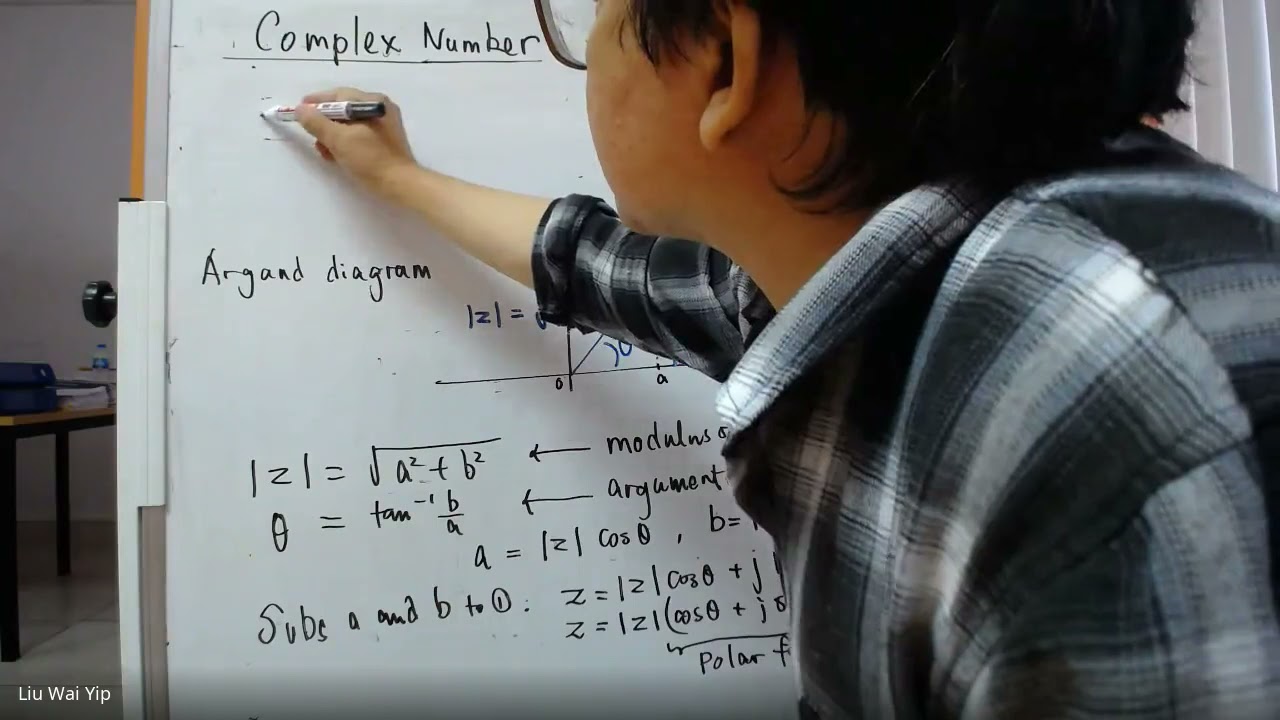 Complex Number
Argand diagram
|z| =
θ
0
a
|z| = √a² + b² ← modulus
θ = tan⁻¹ b/a ← argument
a = |z| cosθ , b=
Subs a and b to ①: z = |z| cosθ + j
z = |z| (cosθ + j
Polar
Liu Wai Yip